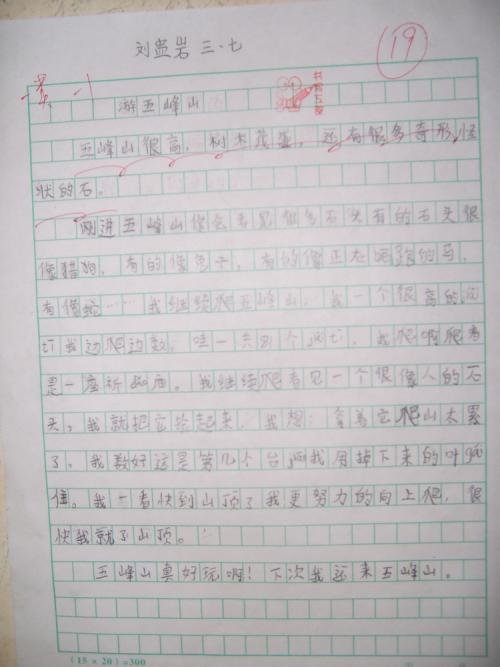 刘蚩岩 三·七
19
游五峰山
五峰山很高，树木茂盛，还有很多奇形怪
状的石。
刚进五峰山你会看见很多石头有的石头很
像猎狗，有的像兔子，有的像正在奔跑的马，
有像蛇……我继续爬五峰山，我一个很高的
我边爬边数，哇一共 个 ，我爬啊爬看
是一座祈 庙。我继续爬看见一个很像人的石
头，我就把它捡起来，我想：拿着它爬山太累
了，我数好这是第几个台 我用掉下来的叶
住。我一看快到山顶了我更努力的向上爬，很
快我就了山顶。
五峰山真好玩啊！下次我还来五峰山。
(15×20)=300